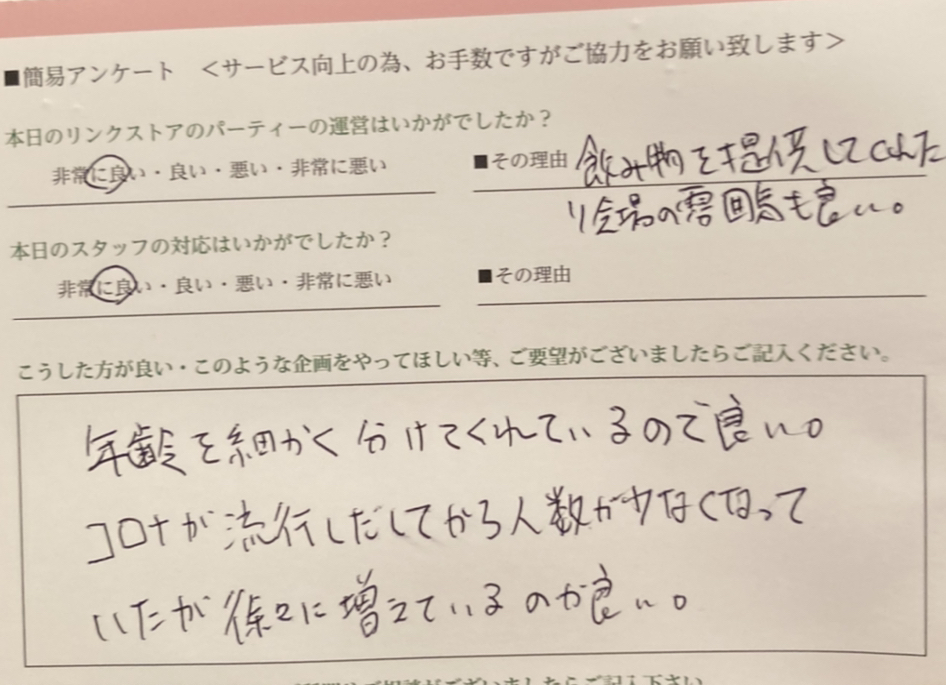 ■簡易アンケート <サービス向上の為、お手数ですがご協力をお願い致します>
本日のリンクストアのパーティーの運営はいかがでしたか?
非常に良い・良い・悪い・非常に悪い
■その理由 飲み物を提供してくれた
り会場の雰囲気も良い。
本日のスタッフの対応はいかがでしたか?
非常に良い・良い・悪い・非常に悪い
■その理由
こうした方が良い・このような企画をやってほしい等、ご要望がございましたらご記入ください。
年齢を細かく分けてくれているので良い。
コロナが流行しだしてから人数が少なくなって
いたが徐々に増えているのが良い。
ございましたらご記入下さい